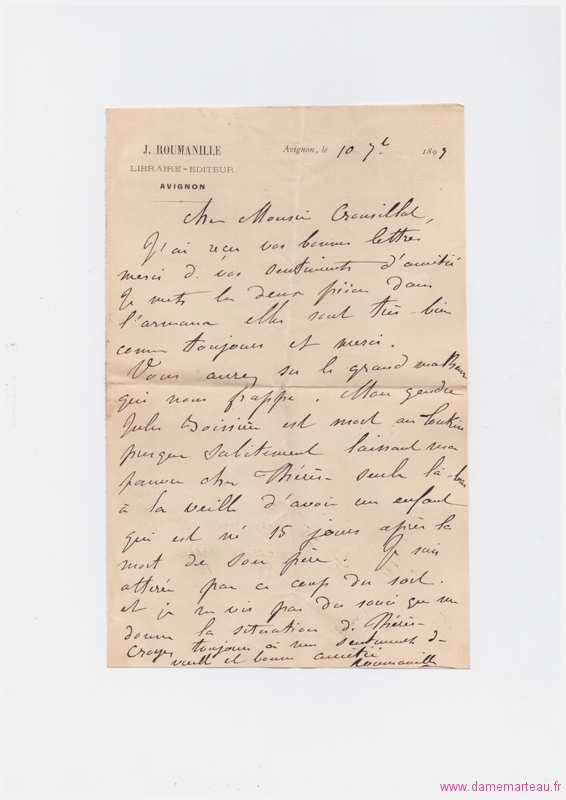 J. ROUMANILLE
LIBRAIRE-EDITEUR
AVIGNON
Avignon, le 10 7b 1897
Cher Monsieur Crousillat,
J'ai reçu vos bonnes lettres
merci de vos sentiments d'amitié
Je mets les deux pièces dans
l'armana elles sont très-bien
comme toujours et merci.
Vous aurez su le grand malheur
qui nous frappe. Mon gendre
Jules Boissière est mort au Tonkin
presque subitement laissant ma
pauvre chère Thérèse seule là-bas
à la veille d'avoir un enfant
qui est né 15 jours après la
mort de son père. Je suis
atterée par ce coup du sort.
et je ne vis pas du souci que me
donne la situation de Thérèse
Croyez toujours à mes sentiments de
vieille et bonne amitié
Roumanille
www.damemarteau.fr